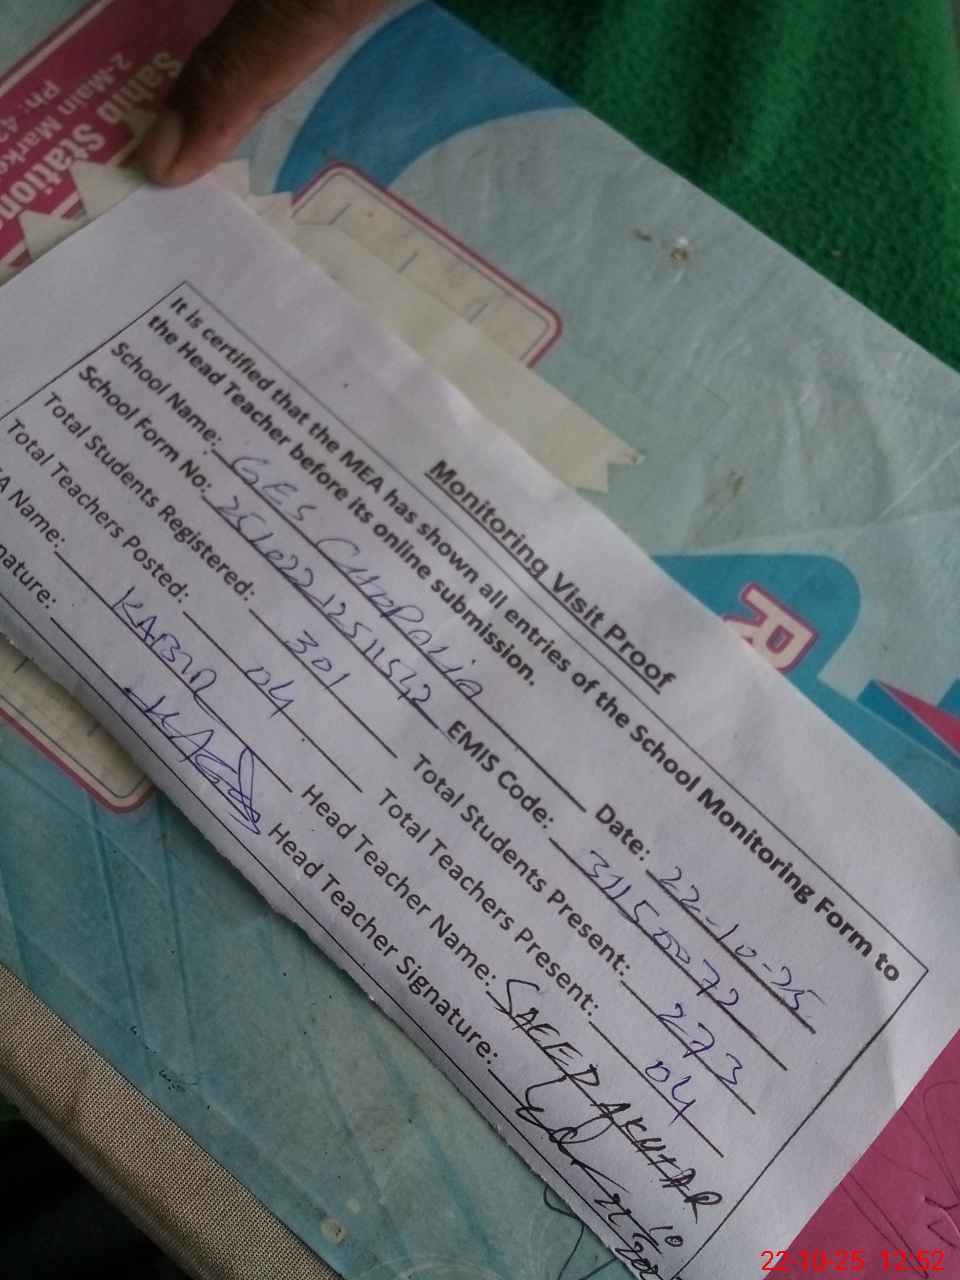 Monitoring Visit Proof
It is certified that the MEA has shown all entries of the School Monitoring Form to
the Head Teacher before its online submission.
School Name: GES Date: 22-10-25
School Form No: EMIS Code: 31150072
Total Students Registered: 301 Total Students Present: 273
Total Teachers Posted: 04 Total Teachers Present: 04
A Name: KABIR Head Teacher Name: SAEED AKHTAR
nature: Head Teacher Signature:
Stationer
2-Main Marke
Ph: 42
R
22-10-25 12:52